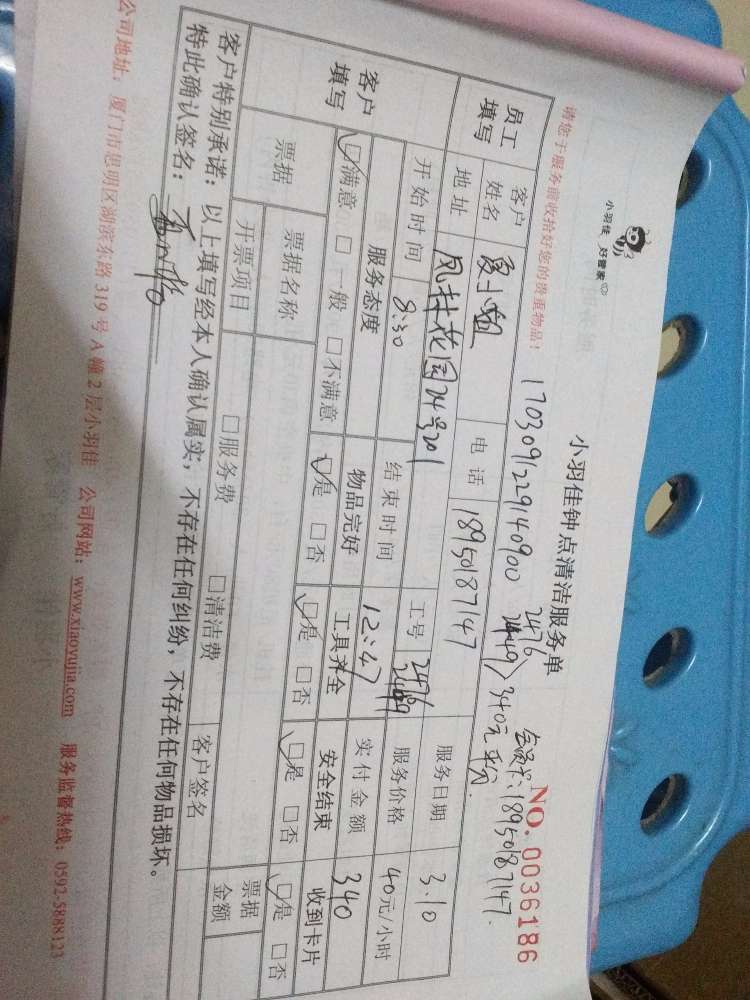 小羽佳 好管家
小羽佳钟点清洁服务单
NO. 0036186
请您于服务前收拾好您的贵重物品!
1703091229140900
2476
2449 } 340元 平分.
会员卡: 18950187147.
员工填写
客户姓名 夏小姐 电话 18950187147 服务日期 3.10
地址 凤林花园24号201 工号 2476 服务价格 40元/小时
客户填写
开始时间 8:30 结束时间 12:47 实付金额 340
服务态度 物品完好 工具齐全 安全结束 收到卡片
☑满意 □一般 □不满意 ☑是 □否 ☑是 □否 ☑是 □否 ☑是 □否
票据 票据名称 票据金额
开票项目 □服务费 □清洁费 客户签名
客户特别承诺:以上填写经本人确认属实,不存在任何纠纷,不存在任何物品损坏。
特此确认签名:
公司地址:厦门市思明区湖滨东路319号A幢2层小羽佳 公司网站:www.xiaoyujia.com 服务监督热线:0592-5888123